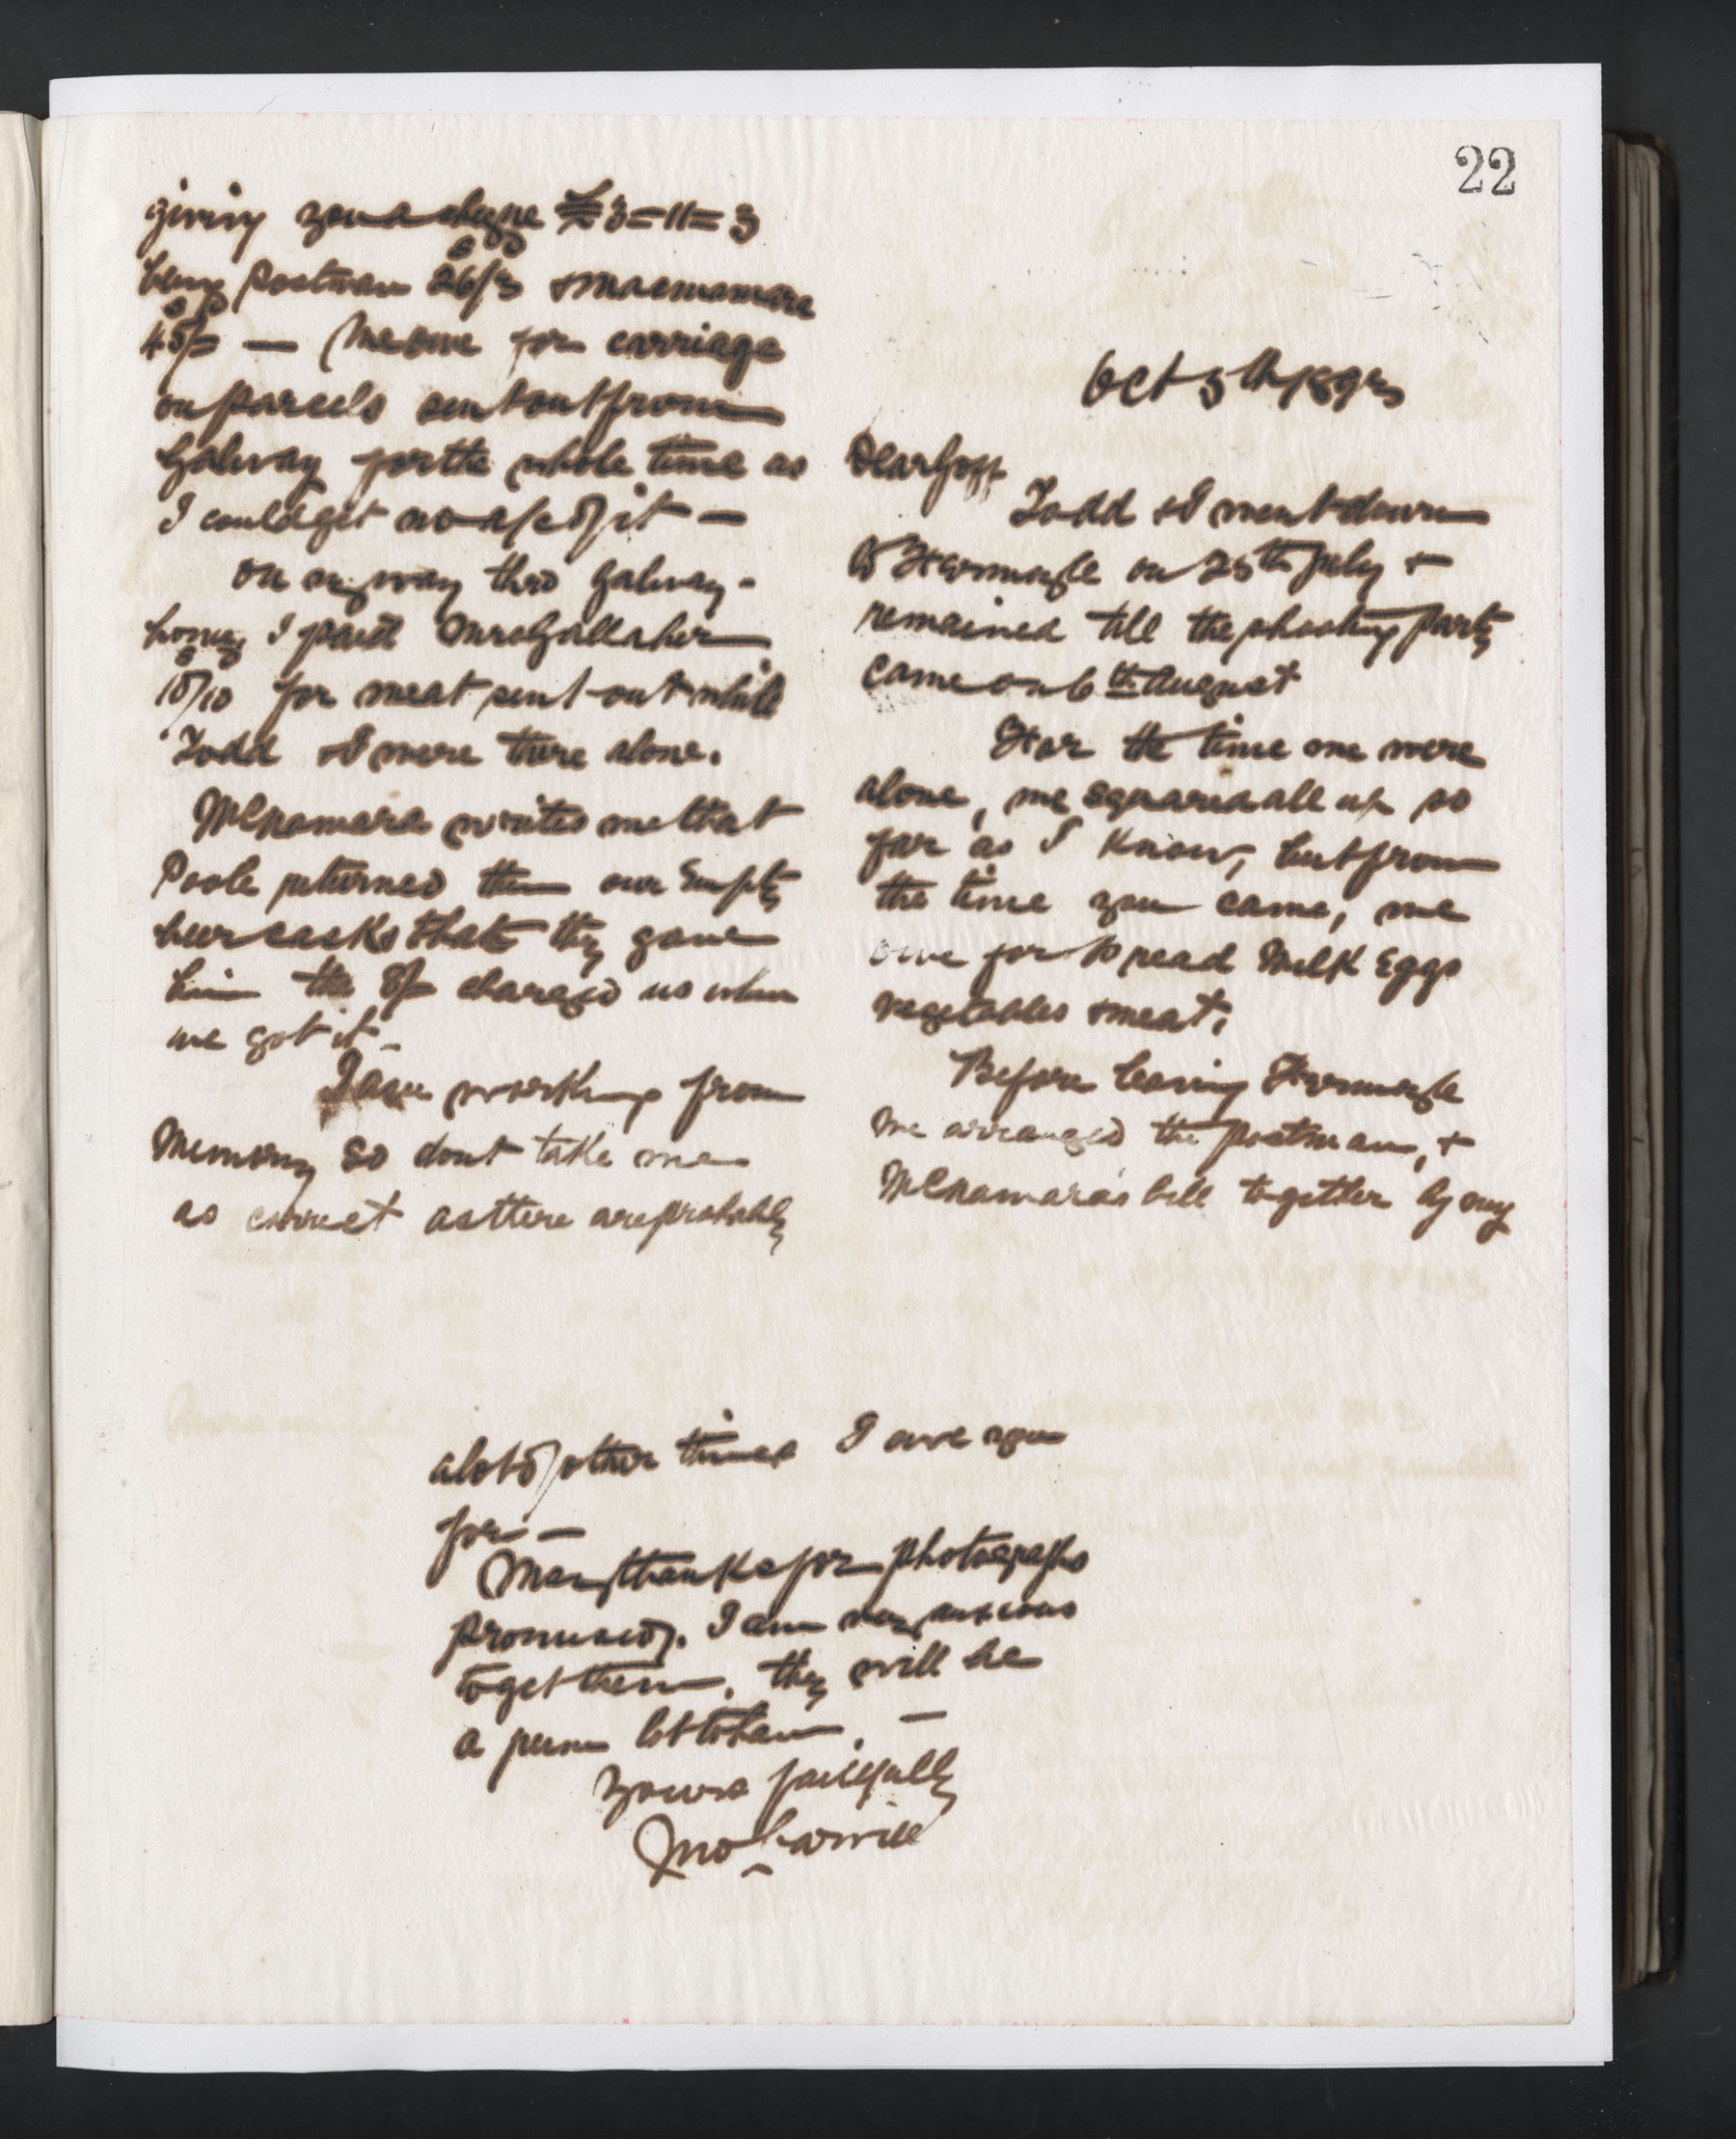 22
Oct 5th 1893
Dear Goff
Todd & I went down
to Fermoyle on 25th July &
remained till the shooting party
came on 6th August
For the time we were
alone, we squared all up so
far as I know, but from
the time you came, we
owe for Bread Milk Eggs
vegetables & meat.
Before leaving Fermoyle
we arranged the postman, &
McNamara's bill together by my
giving you a cheque £3=11=3
being Postman 26/3 & Macnamara
45/= — We owe for carriage
on parcels sent out from
Galway for the whole time as
I could get no a/c of it —
On my way thro Galway -
home, I paid Mrs Gallaher
10/10 for meat sent out while
Todd & I were there alone.
McNamara writes me that
Poole returned them our Empty
beer casks that they gave
him the 8/= charged us when
we got it -
I am working from
Memory so dont take me
as correct as there are probably
a lot of other times I owe you
for —
Many thanks for photographs
promised. I am very anxious
to get them, they will be
a lot to have. —
Yours faithfully
Jno Carvill